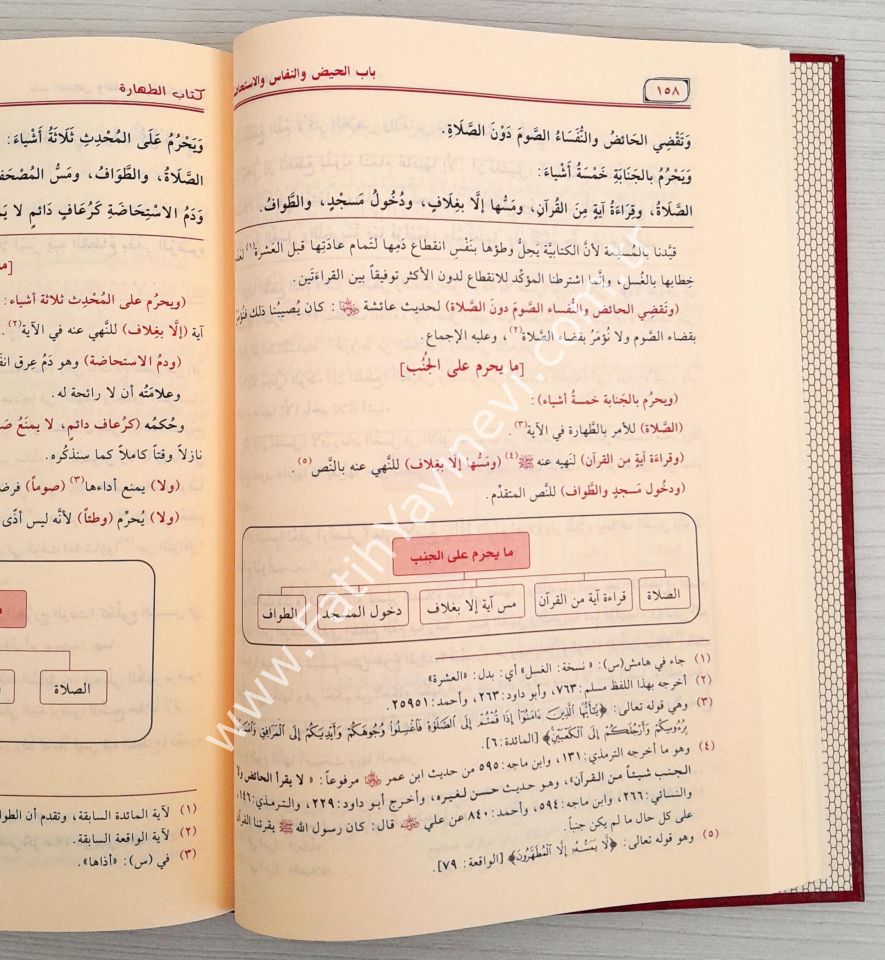 باب الحيض والنفاس والاستحاضة
١٥٨
وَتَقْضِي الحَائضُ والنُّفَسَاءُ الصَّومَ دُوْنَ الصَّلَاةِ.
وَيَحْرُمُ بالجَنَابَةِ خَمْسَةُ أَشْيَاءَ:
الصَّلَاةُ، وَقِرَاءَةُ آيةٍ مِنَ القُرآنِ، ومَسُّها إلَّا بِغِلَافٍ، ودُخُولُ مَسْجِدٍ، والطَّوافُ.
قيَّدنا بالمُسلِمة لأنَّ الكتابيَّة يَحِلُّ وطؤها بنَفْسِ انقطاع دَمِها لتَمام عادَتِها قبل العَشرة(١)
خِطابها بالغُسل، وإنَّما اشترطنا المؤكِّد للانقطاع لدون الأكثر توفيقاً بين القراءَتَين.
(وتَقضِي الحائض والنُّفساء الصَّومَ دونَ الصَّلاة) لحديث عائشة ﵂: كان يُصيبُنا ذلك فنُؤمَرُ
بقضاء الصَّوم ولا نُؤمَرُ بقضاء الصَّلاة(٢)، وعليه الإجماع.
[ما يحرم على الجُنُب]
(ويحرُم بالجَنابة خمسةُ أشياء):
(الصَّلاة) للأمر بالطَّهارة في الآية(٣).
(وقراءَة آيةٍ من القرآن) لنَهيه عنه ﷺ(٤) (ومَسُّها إلَّا بِغلاف) للنَّهي عنه بالنَّص(٥).
(ودخُول مَسجدٍ والطَّواف) للنص المتقدِّم.
ما يحرم على الجنب
الصلاة
قراءة آية من القرآن
مس آية إلا بغلاف
دخول المسجد
الطواف
(١) جاء في هامش(س): «نسخة: الغسل» أي: بدل: «العشرة»
(٢) أخرجه بهذا اللفظ مسلم: ٧٦٣، وأبو داود: ٢٦٣، وأحمد: ٢٥٩٥١.
(٣) وهي قوله تعالى: ﴿يَٰٓأَيُّهَا ٱلَّذِينَ ءَامَنُوٓا۟ إِذَا قُمْتُمْ إِلَى ٱلصَّلَوٰةِ فَٱغْسِلُوا۟ وُجُوهَكُمْ وَأَيْدِيَكُمْ إِلَى ٱلْمَرَافِقِ وَٱمْسَحُوا۟
بِرُءُوسِكُمْ وَأَرْجُلَكُمْ إِلَى ٱلْكَعْبَيْنِ﴾ [المائدة: ٦].
(٤) وهو ما أخرجه الترمذي: ١٣١، وابن ماجه: ٥٩٥ من حديث ابن عمر ﵄ مرفوعاً: «لا يقرأ الحائض ولا
الجنب شيئاً من القرآن»، وهو حديث حسن لغيره، وأخرج أبو داود: ٢٢٩، والترمذي: ١٤٦،
والنسائي: ٢٦٦، وابن ماجه: ٥٩٤، وأحمد: ٨٤٠ عن علي ﵁ قال: كان رسول الله ﷺ يقرئنا القرآن
على كل حال ما لم يكن جنباً.
(٥) وهو قوله تعالى: ﴿لَّا يَمَسُّهُۥٓ إِلَّا ٱلْمُطَهَّرُونَ﴾ [الواقعة: ٧٩].
كتاب الطهارة
وَيَحْرُمُ عَلَى المُحْدِثِ ثَلَاثَةُ أَشْيَاءَ:
الصَّلَاةُ، والطَّوَافُ، ومَسُّ المُصْحَفِ
وَدَمُ الاسْتِحَاضَةِ كَرُعَافٍ دَائمٍ لا
(ويحرُم على المُحْدِث ثلاثة أشياء:
آية (إلَّا بِغلاف) للنَّهي عنه في الآية(٢).
(ودمُ الاستحاضة) وهو دَمُ عِرق
وعلامَتُه أن لا رائحة له.
وحُكمُه (كرُعاف دائمٍ، لا يمنَعُ
نازلاً وقتاً كاملاً كما سنذكُره.
(ولا) يمنع أداءها(٣) (صوماً)
(ولا) يُحرِّم (وطئاً) لأنَّه ليس أذًى
الصلاة
(١) لآية المائدة السابقة، وتقدم أن
(٢) لآية الواقعة السابقة.
(٣) في (س): «أذاها».
www.FatihYayinevi.com.tr